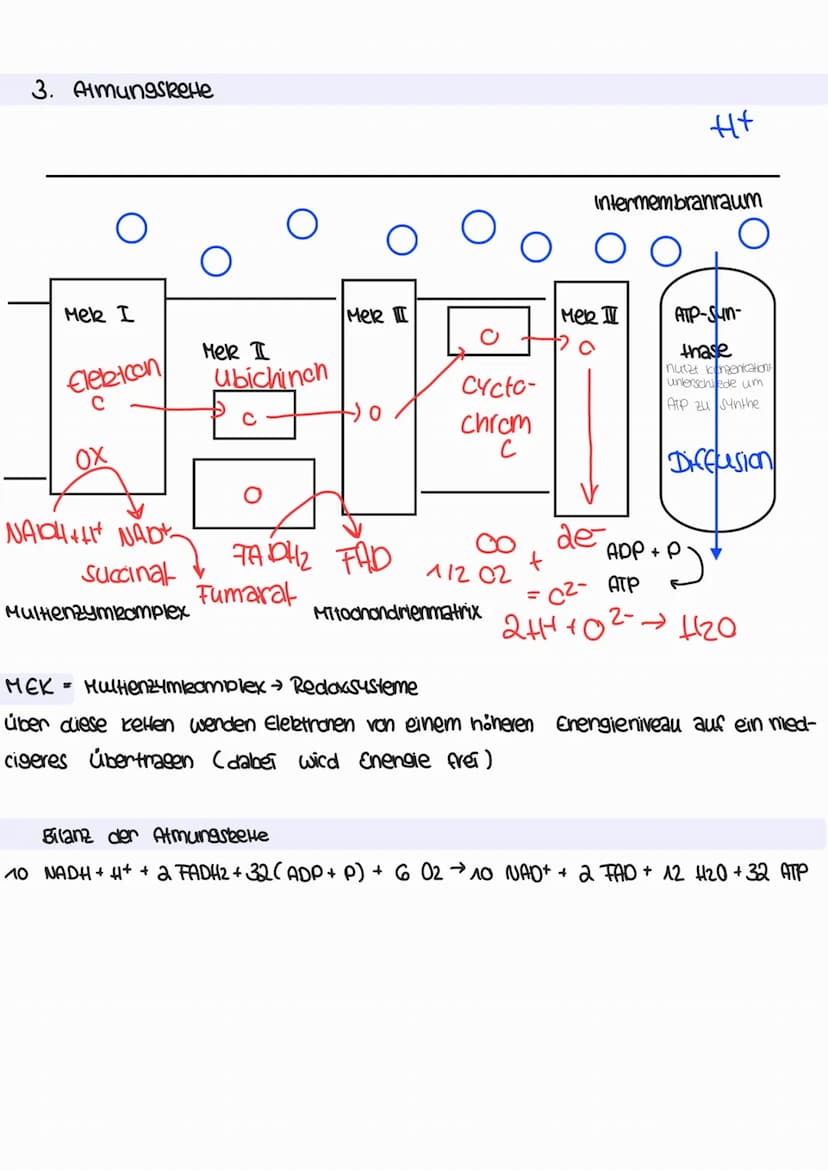 3. Atmungskette
H+
Intermembranraum
Mek I
Mek II
Ubichinon
Mek III
Cycto-
chrom
C
Mek IV
ATP-Syn-
thase
nutzt Konzentrations
unterschiede um
ATP zu synthe
Diffusion
Elektron
OX
NADH+H+ NAD+
Succinat
Fumarat
FADH2 FAD
1/2 O2 + 2e-
= O2-
2H+ + O2- → H2O
ADP + P
ATP
Multienzymkomplex
Mitochondrienmatrix
MEK = Multienzymkomplex → Redoxsysteme
über diese Ketten werden Elektronen von einem höheren Energieniveau auf ein nied-
rigeres übertragen (dabei wird Energie frei)
Bilanz der Atmungskette
10 NADH + H+ + 2 FADH2 + 32 (ADP + P) + 6 O2 → 10 NAD+ + 2 FAD + 12 H2O + 32 ATP